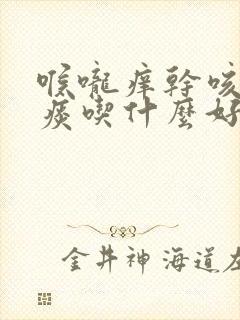 喉嚨痒幹咳
痰喫什麼好
金井神 海道左